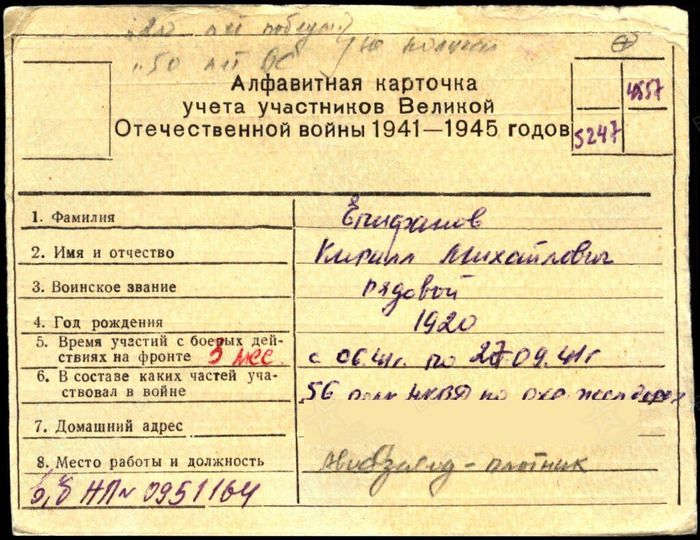 "20 лет победы"
"50 лет ВС" } не получал
Алфавитная карточка
учета участников Великой
Отечественной войны 1941—1945 годов
4557
5247
1. Фамилия Епифанов
2. Имя и отчество Кирилл Михайлович
3. Воинское звание рядовой
4. Год рождения 1920
5. Время участий с боевых дей-
ствиях на фронте 3 мес. с 06.41г. по 27.09.41г
6. В составе каких частей уча-
ствовал в войне 56 полк НКВД по охр. жел. дорог
7. Домашний адрес
8. Место работы и должность Авиазавод - плотник
б/б НП № 0951164